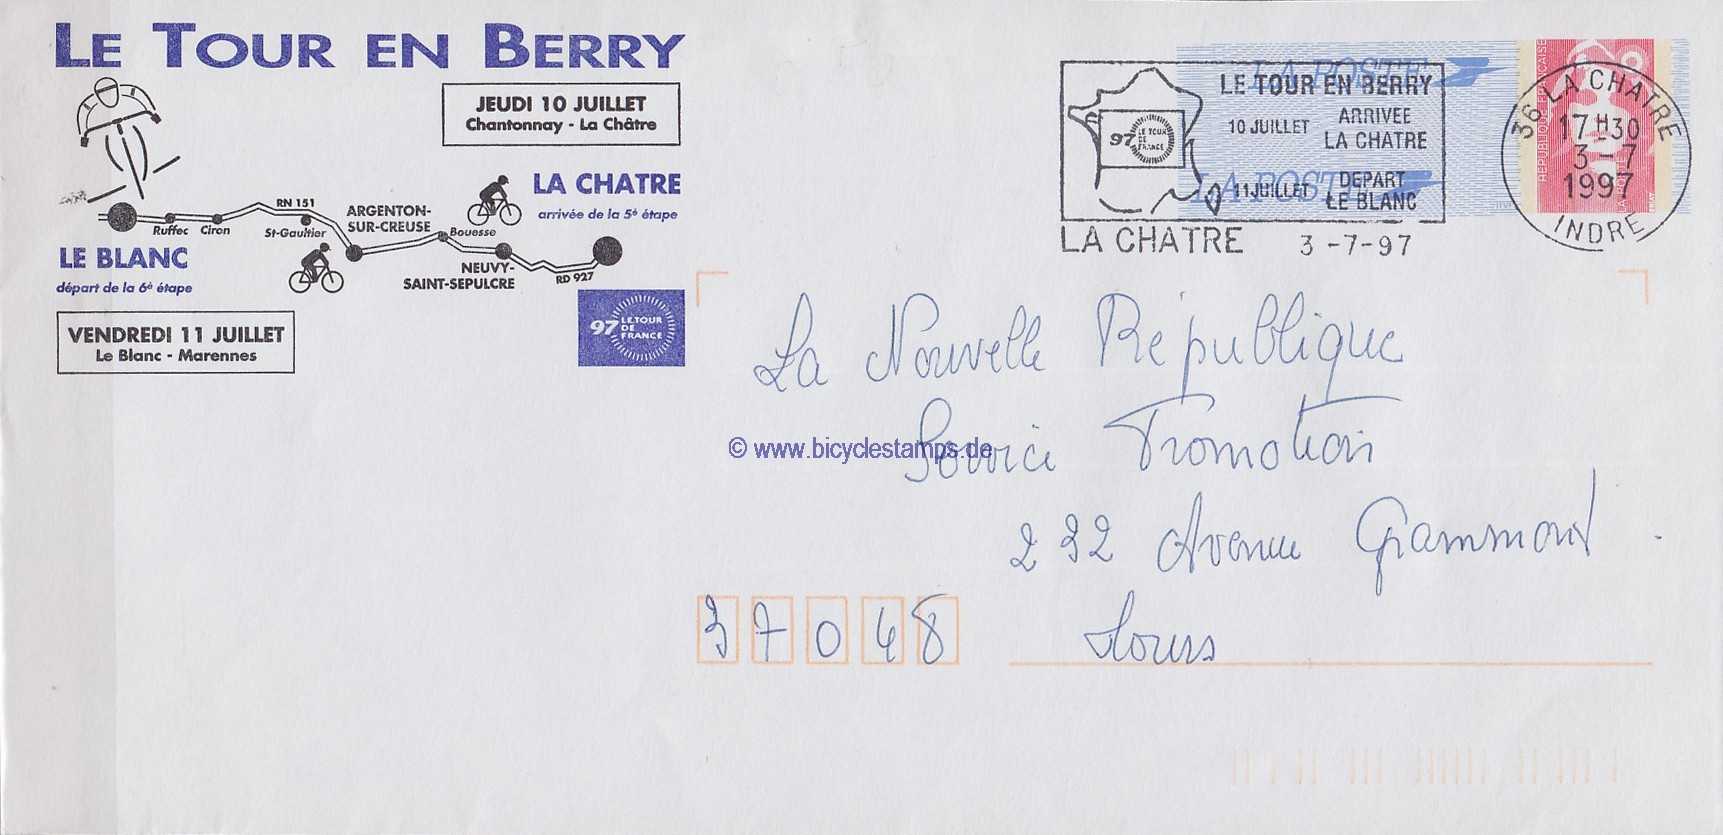 LE TOUR EN BERRY
JEUDI 10 JUILLET
Chantonnay - La Châtre
LA CHATRE
arrivée de la 5è étape
RN 151
ARGENTON-
SUR-CREUSE
Ruffec Ciron St-Gaultier Bouesse
LE BLANC
départ de la 6è étape
NEUVY-
SAINT-SEPULCRE
RD 927
VENDREDI 11 JUILLET
Le Blanc - Marennes
97 LE TOUR
DE
FRANCE
LA POSTE
LE TOUR EN BERRY
10 JUILLET ARRIVEE
LA CHATRE
97 LE TOUR
DE
FRANCE
LA POSTE
11 JUILLET DEPART
LE BLANC
LA CHATRE 3-7-97
REPUBLIQUE FRANCAISE
LA POSTE
36 LA CHATRE
17H30
3-7
1997
INDRE
La Nouvelle République
Service Promotion
© www.bicyclestamps.de
232 Avenue Grammont
37048 Tours